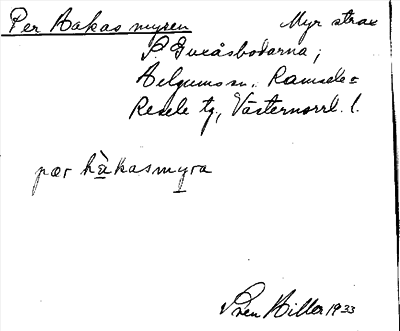 Per Aakas myren Myr strax
S. Guxåsbodarna;
Helgums sn. Ramsele o
Resele tg, Västernorrl. l.
pær hàkasmyra
1933